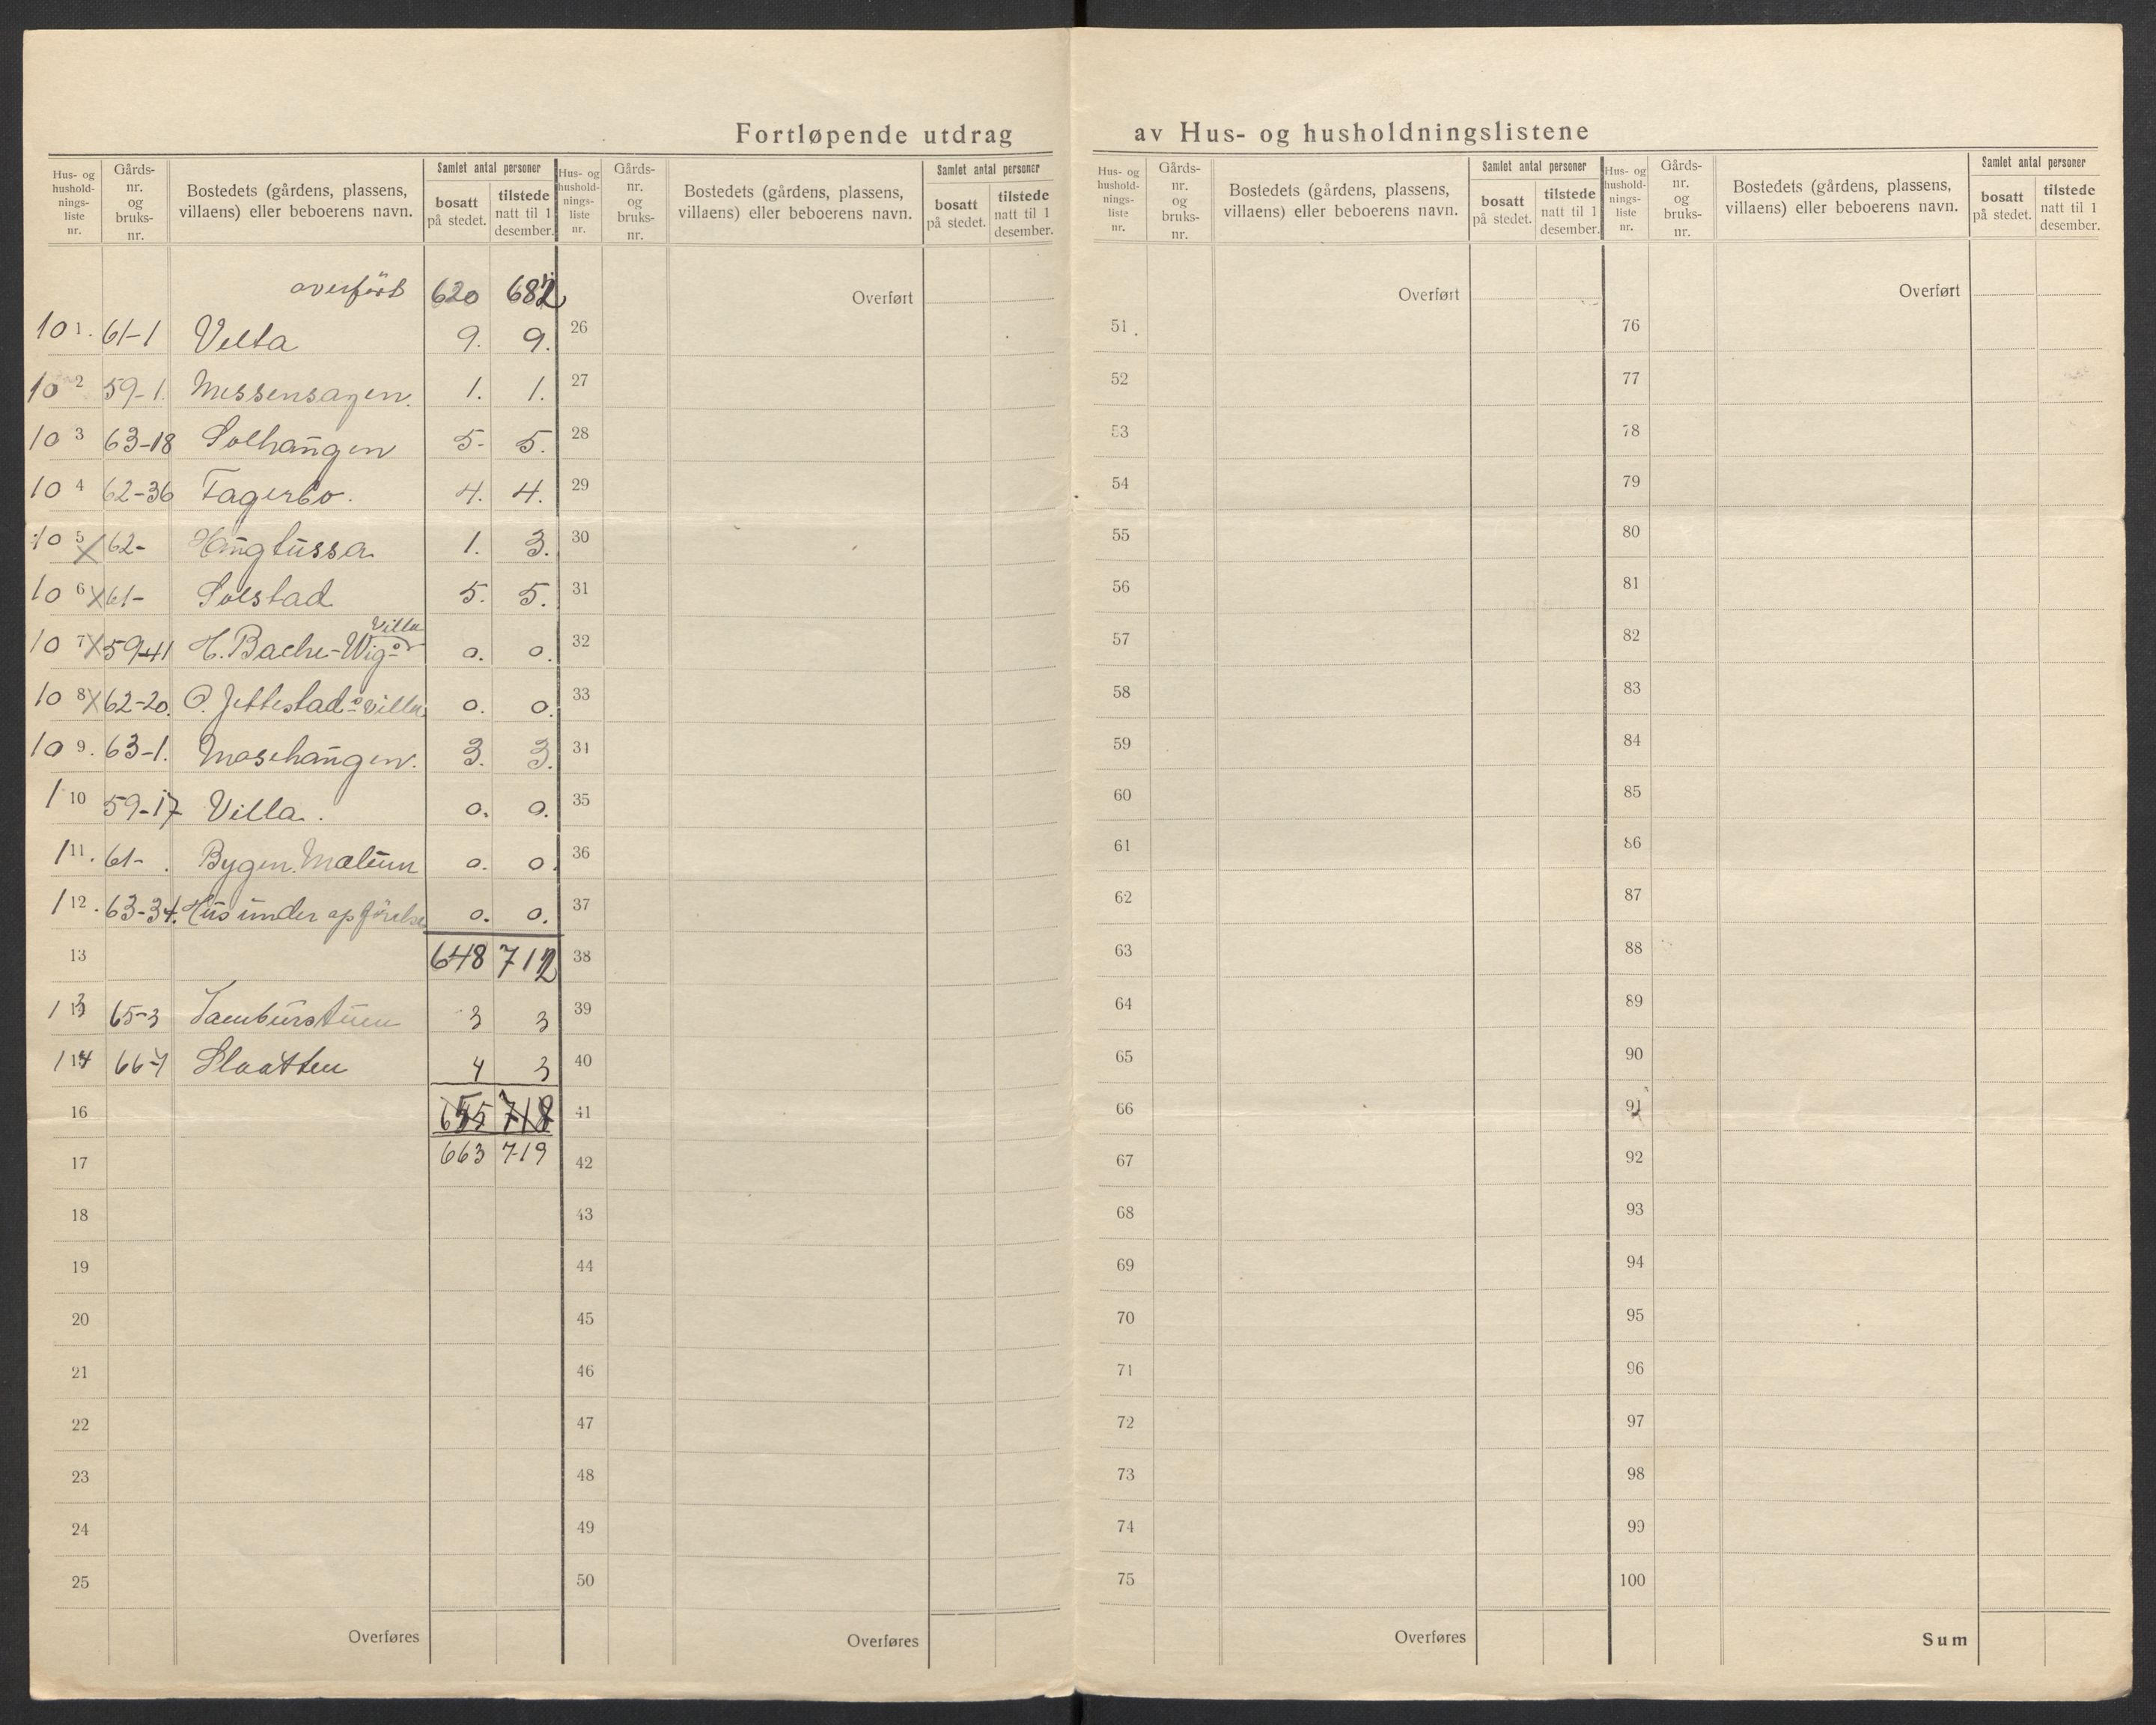 Fortløpende utdrag av Hus- og husholdningslistene
Hus- og hushold- nings- liste nr. | Gårds- nr. og bruks- nr. | Bostedets (gårdens, plassens, villaens) eller beboerens navn. | Samlet antal personer | bosatt på stedet. | tilstede natt til 1 desember.
overført 620 682
101. 61-1 Velta 9. 9.
102 59-1. Messensagen. 1. 1.
103 63-18 Solhaŭgen 5. 5.
104 62-36 Fagerbo. 4. 4.
105 X 62- Haŭgtussa 1. 3.
106 X 61- Solstad 5. 5.
Villa
107 X 59-41 H. Bache-Wigs 0. 0.
108 X 62-20. O. Jettestads villa 0. 0.
109. 63-1. Mosehaŭgen. 3. 3.
110 59-17 Villa. 0. 0.
111. 61- . Bygen. Mælum 0. 0.
112. 63-34. Hus under opförelse 0. 0.
13 648 712
113 65-3 3 3
114 66-7 Slaatten 4 3
16 655 718
17 663 719
18
19
20
21
22
23
24
25
Overføres
Hus- og hushold- nings- liste nr. | Gårds- nr. og bruks- nr. | Bostedets (gårdens, plassens, villaens) eller beboerens navn. | Samlet antal personer | bosatt på stedet. | tilstede natt til 1 desember.
Overført
26
27
28
29
30
31
32
33
34
35
36
37
38
39
40
41
42
43
44
45
46
47
48
49
50
Overføres
Hus- og hushold- nings- liste nr. | Gårds- nr. og bruks- nr. | Bostedets (gårdens, plassens, villaens) eller beboerens navn. | Samlet antal personer | bosatt på stedet. | tilstede natt til 1 desember.
Overført
51
52
53
54
55
56
57
58
59
60
61
62
63
64
65
66
67
68
69
70
71
72
73
74
75
Overføres
Hus- og hushold- nings- liste nr. | Gårds- nr. og bruks- nr. | Bostedets (gårdens, plassens, villaens) eller beboerens navn. | Samlet antal personer | bosatt på stedet. | tilstede natt til 1 desember.
Overført
76
77
78
79
80
81
82
83
84
85
86
87
88
89
90
91
92
93
94
95
96
97
98
99
100
Sum